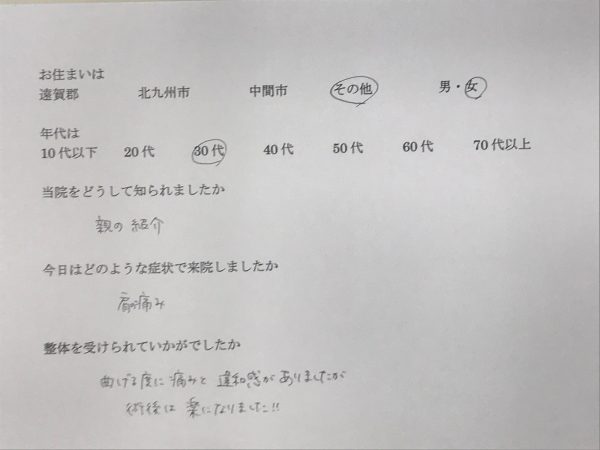 お住まいは
遠賀郡 北九州市 中間市 その他 男・女
年代は
10代以下 20代 30代 40代 50代 60代 70代以上
当院をどうして知られましたか
親の紹介
今日はどのような症状で来院しましたか
肩の痛み
整体を受けられていかがでしたか
曲げる度に痛みと違和感がありましたが
術後は楽になりました!!